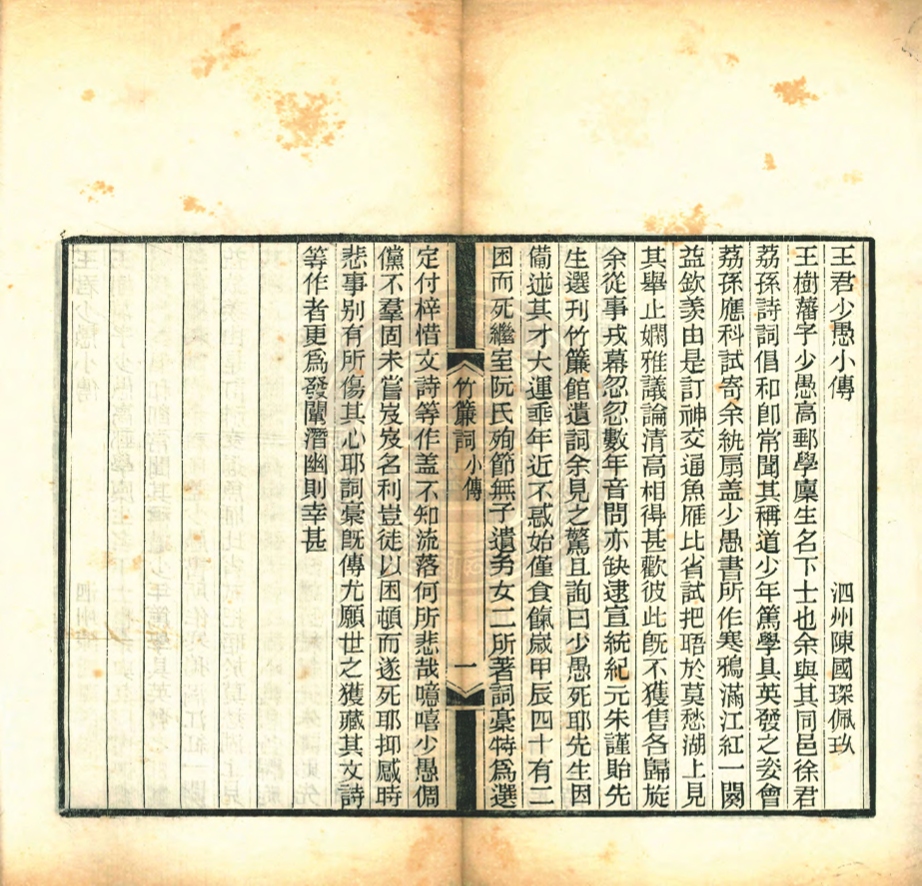 王君少愚小傳
泗州陳國琛佩玖
王樹藩字少愚高郵學廩生名下士也余與其同邑徐君
荔孫詩詞倡和卽常聞其稱道少年篤學具英發之姿會
荔孫應科試寄余紈扇盖少愚書所作寒鴉滿江紅一闋
益欽羨由是訂神交通魚雁比省試把晤於莫愁湖上見
其舉止嫻雅議論清高相得甚歡彼此旣不獲售各歸旋
余從事戎幕忽忽數年音問亦缺逮宣統紀元朱謹貽先
生選刊竹簾館遺詞余見之驚且詢曰少愚死耶先生因
備述其才大運乖年近不惑始僅食餼歲甲辰四十有二
困而死繼室阮氏殉節無子遺男女二所著詞稾特爲選
竹簾詞
小傳
一
定付梓惜文詩等作盖不知流落何所悲哉噫嘻少愚倜
儻不羣固未嘗岌岌名利豈徒以困頓而遂死耶抑感時
悲事别有所傷其心耶詞稾旣傳尤願世之獲藏其文詩
等作者更爲發闡潛幽則幸甚